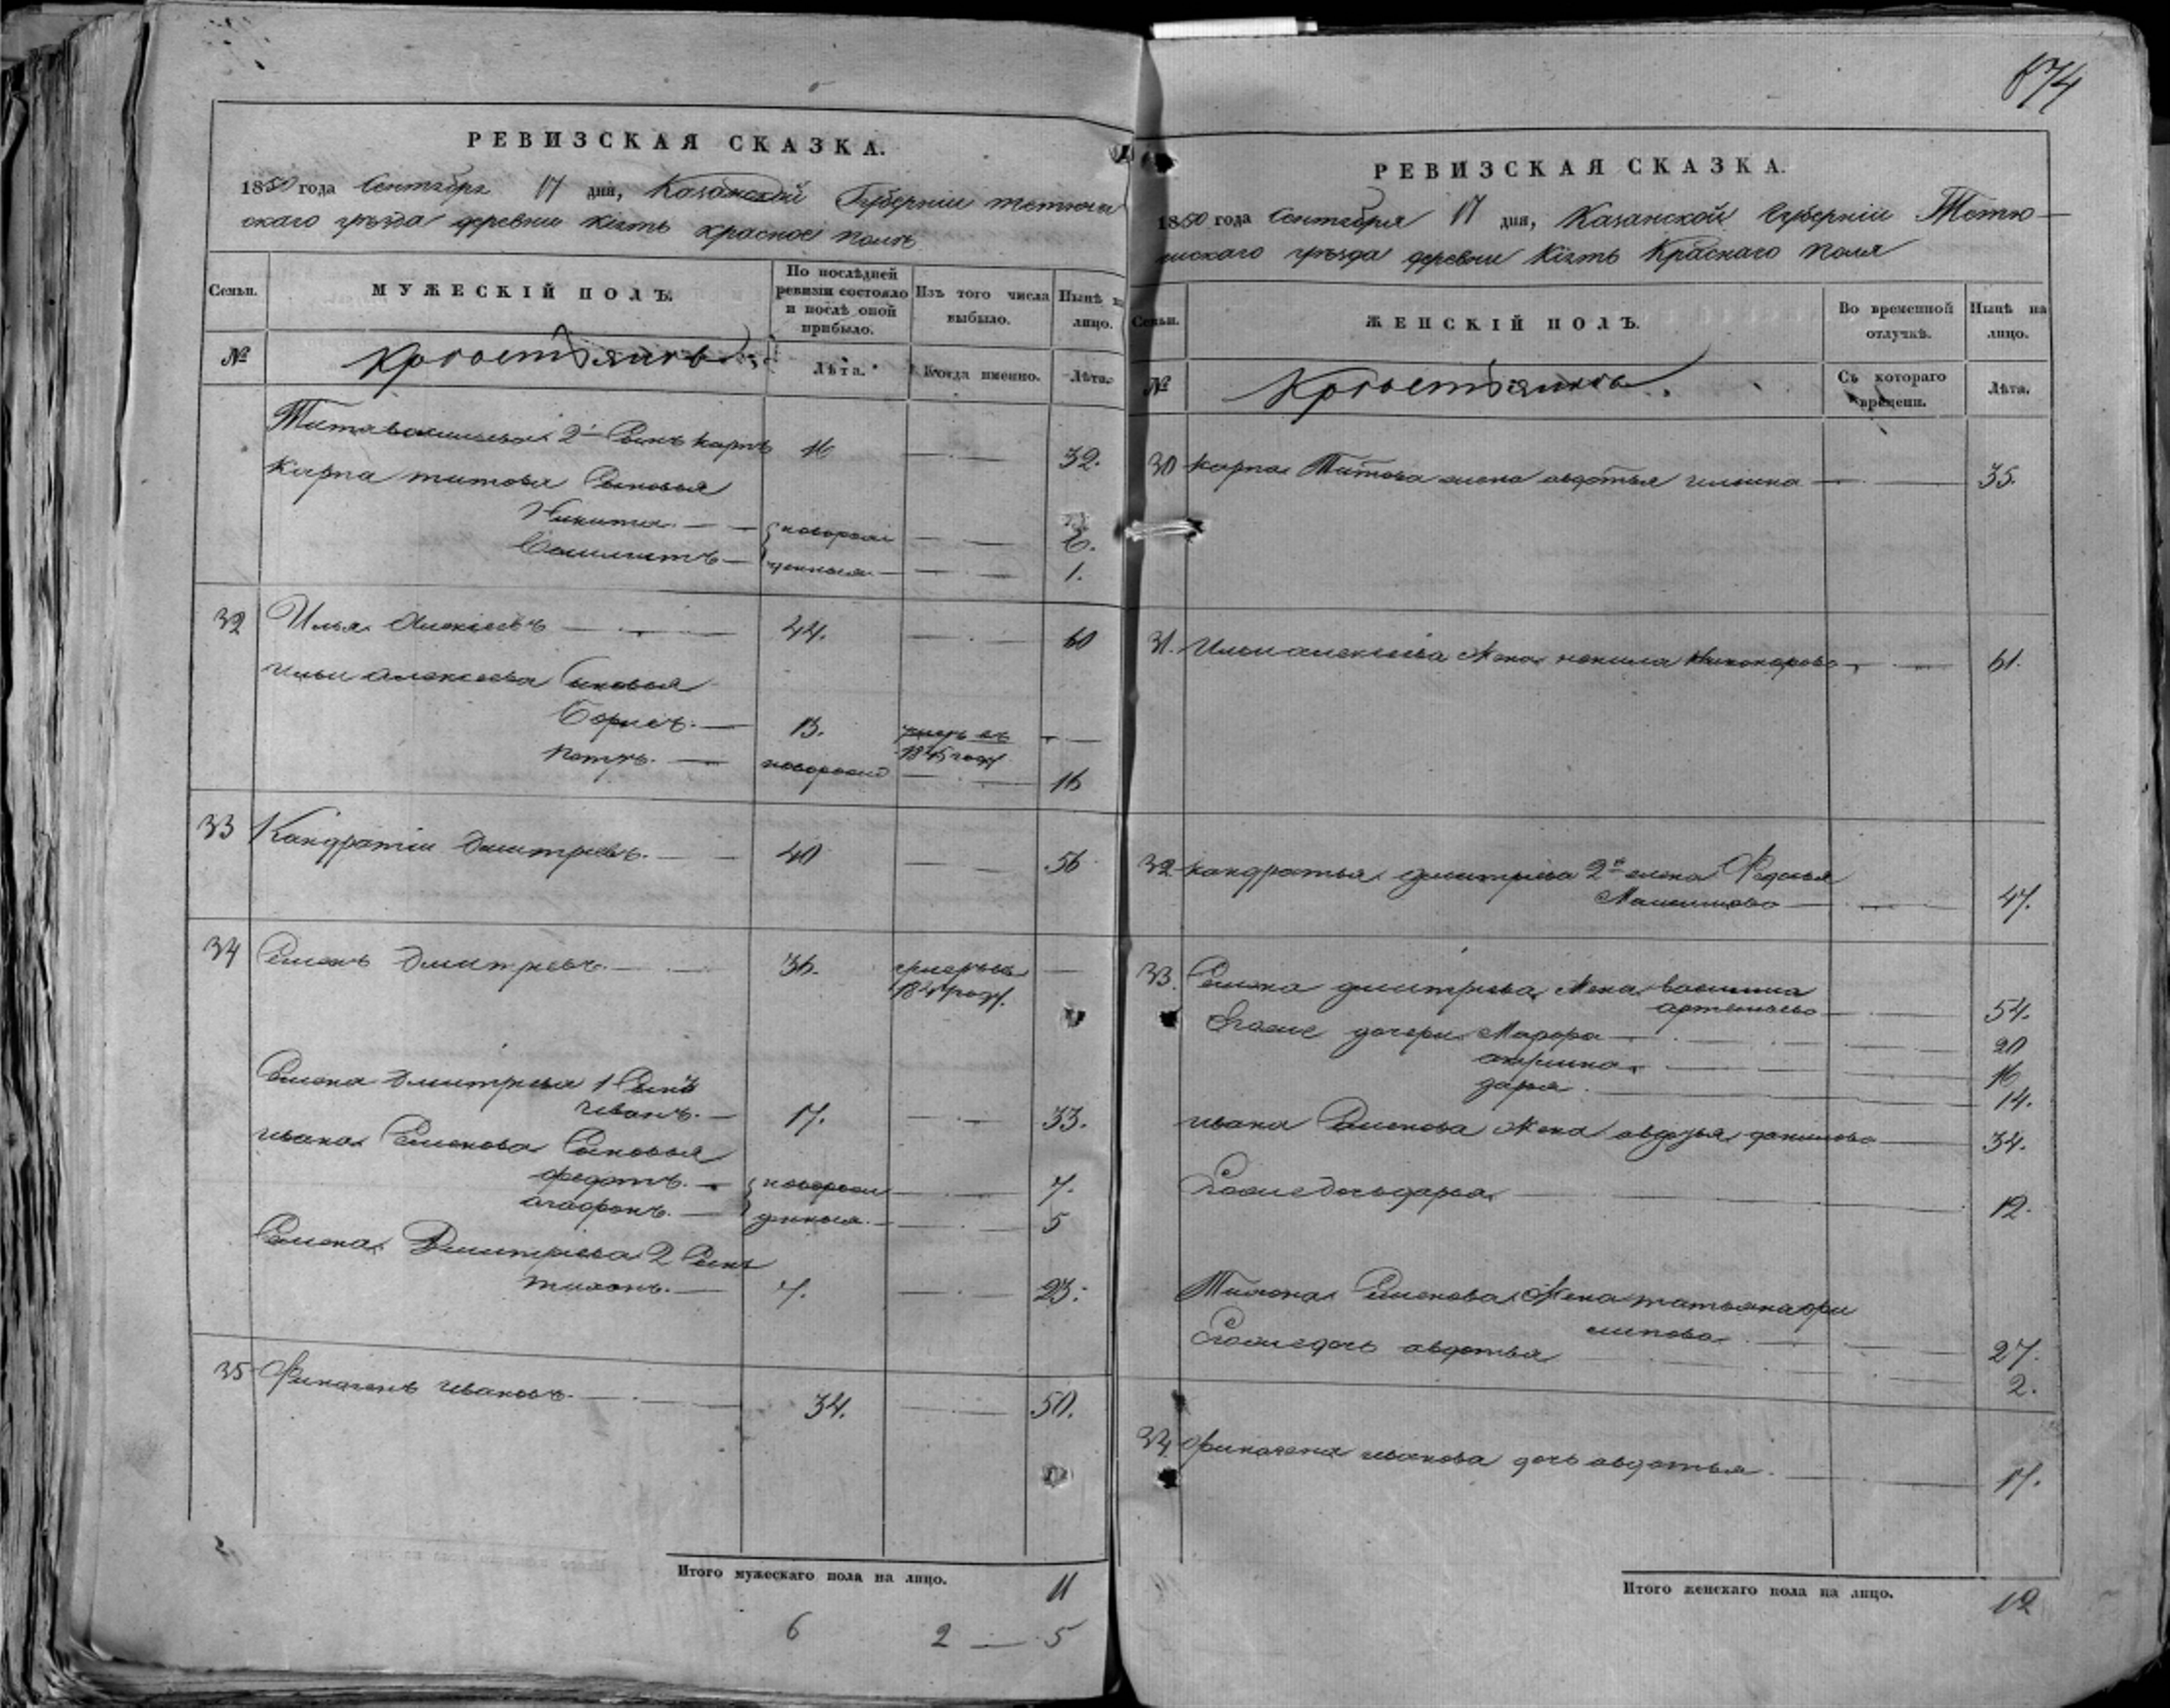 874
РЕВИЗСКАЯ СКАЗКА.
1850 года Сентября 17 дня, Казанской Губерніи тетюш
скаго уѣзда деревни Кіять красное поле
Семьи.
МУЖЕСКІЙ ПОЛЪ.
По послѣдней ревизіи состояло и послѣ оной прибыло.
Изъ того числа выбыло.
Нынѣ на лицо.
№
Лѣта.
Когда именно.
Лѣта.
Тита 2й Сынъ карпъ 16 32.
Карпа титова Сыновья
Никита новорож
денныя 1.
32 Илья Алексеевъ 44. 60
Ильи алексеева Сыновья
Борисъ. 13. умеръ въ 1845 году
петръ. новорож 16
33 Кандратіи Дмитріевъ. 40 56
34 Семенъ Дмитріевъ. 36. умеръ въ
Семена Дмитріева 1 Сынъ
иванъ. 17. 33.
ивана Семенова Сыновья
федотъ. новорож 7.
агафонъ. денныя 5
Семена Дмитріева 2 Сынъ
тихонъ. 7. 23.
35 ивановъ. 34. 50.
Итого мужескаго пола на лицо. 11
6 2 — 5
РЕВИЗСКАЯ СКАЗКА.
1850 года Сентября 17 дня, Казанской Губерніи Тетю-
шскаго уѣзда деревни Кіять Краснаго поля
Семьи.
ЖЕНСКІЙ ПОЛЪ.
Во временной отлучкѣ.
Нынѣ на лицо.
№
Съ котораго времени.
Лѣта.
30 карпа Титова жена авдотья 35.
31. Ильи алексеева Жена ненила Никонорова 61.
32 кандратья дмитріева 2я жена Федосья
47.
33. Семена дмитріева Жена василиса
артемьева 54.
дочери Марфа 20
16
дарья 14.
ивана Семенова Жена данилова 34.
дочь дарья 12.
Тихона Семенова Жена татьяна фи
липова 27.
дочь авдотья 2.
34 иванова дочь авдотья. 17.
Итого женскаго пола на лицо. 12